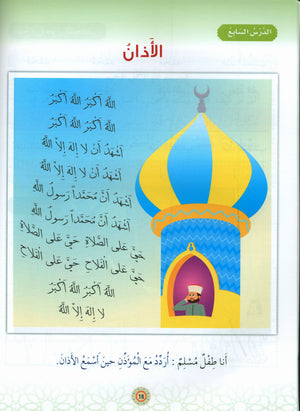 الدَّرْسُ السّابِعُ
الأَذانُ
اللَّهُ أَكْبَرُ اللَّهُ أَكْبَرُ
اللَّهُ أَكْبَرُ اللَّهُ أَكْبَرُ
أَشْهَدُ أَنْ لا إِلهَ إِلاَّ اللَّهُ
أَشْهَدُ أَنْ لا إِلهَ إِلاَّ اللَّهُ
أَشْهَدُ أَنَّ مُحَمَّداً رَسولُ اللَّهِ
أَشْهَدُ أَنَّ مُحَمَّداً رَسولُ اللَّهِ
حَيَّ عَلى الصَّلاةِ حَيَّ عَلى الصَّلاةِ
حَيَّ عَلى الْفَلاحِ حَيَّ عَلى الْفَلاحِ
اللَّهُ أَكْبَرُ اللَّهُ أَكْبَرُ
لا إِلهَ إِلاَّ اللَّهُ
أَنا طِفْلٌ مُسْلِمٌ : أُرَدِّدُ مَعَ الْمُؤَذِّنِ حينَ أَسْمَعُ الأَذانَ.
18